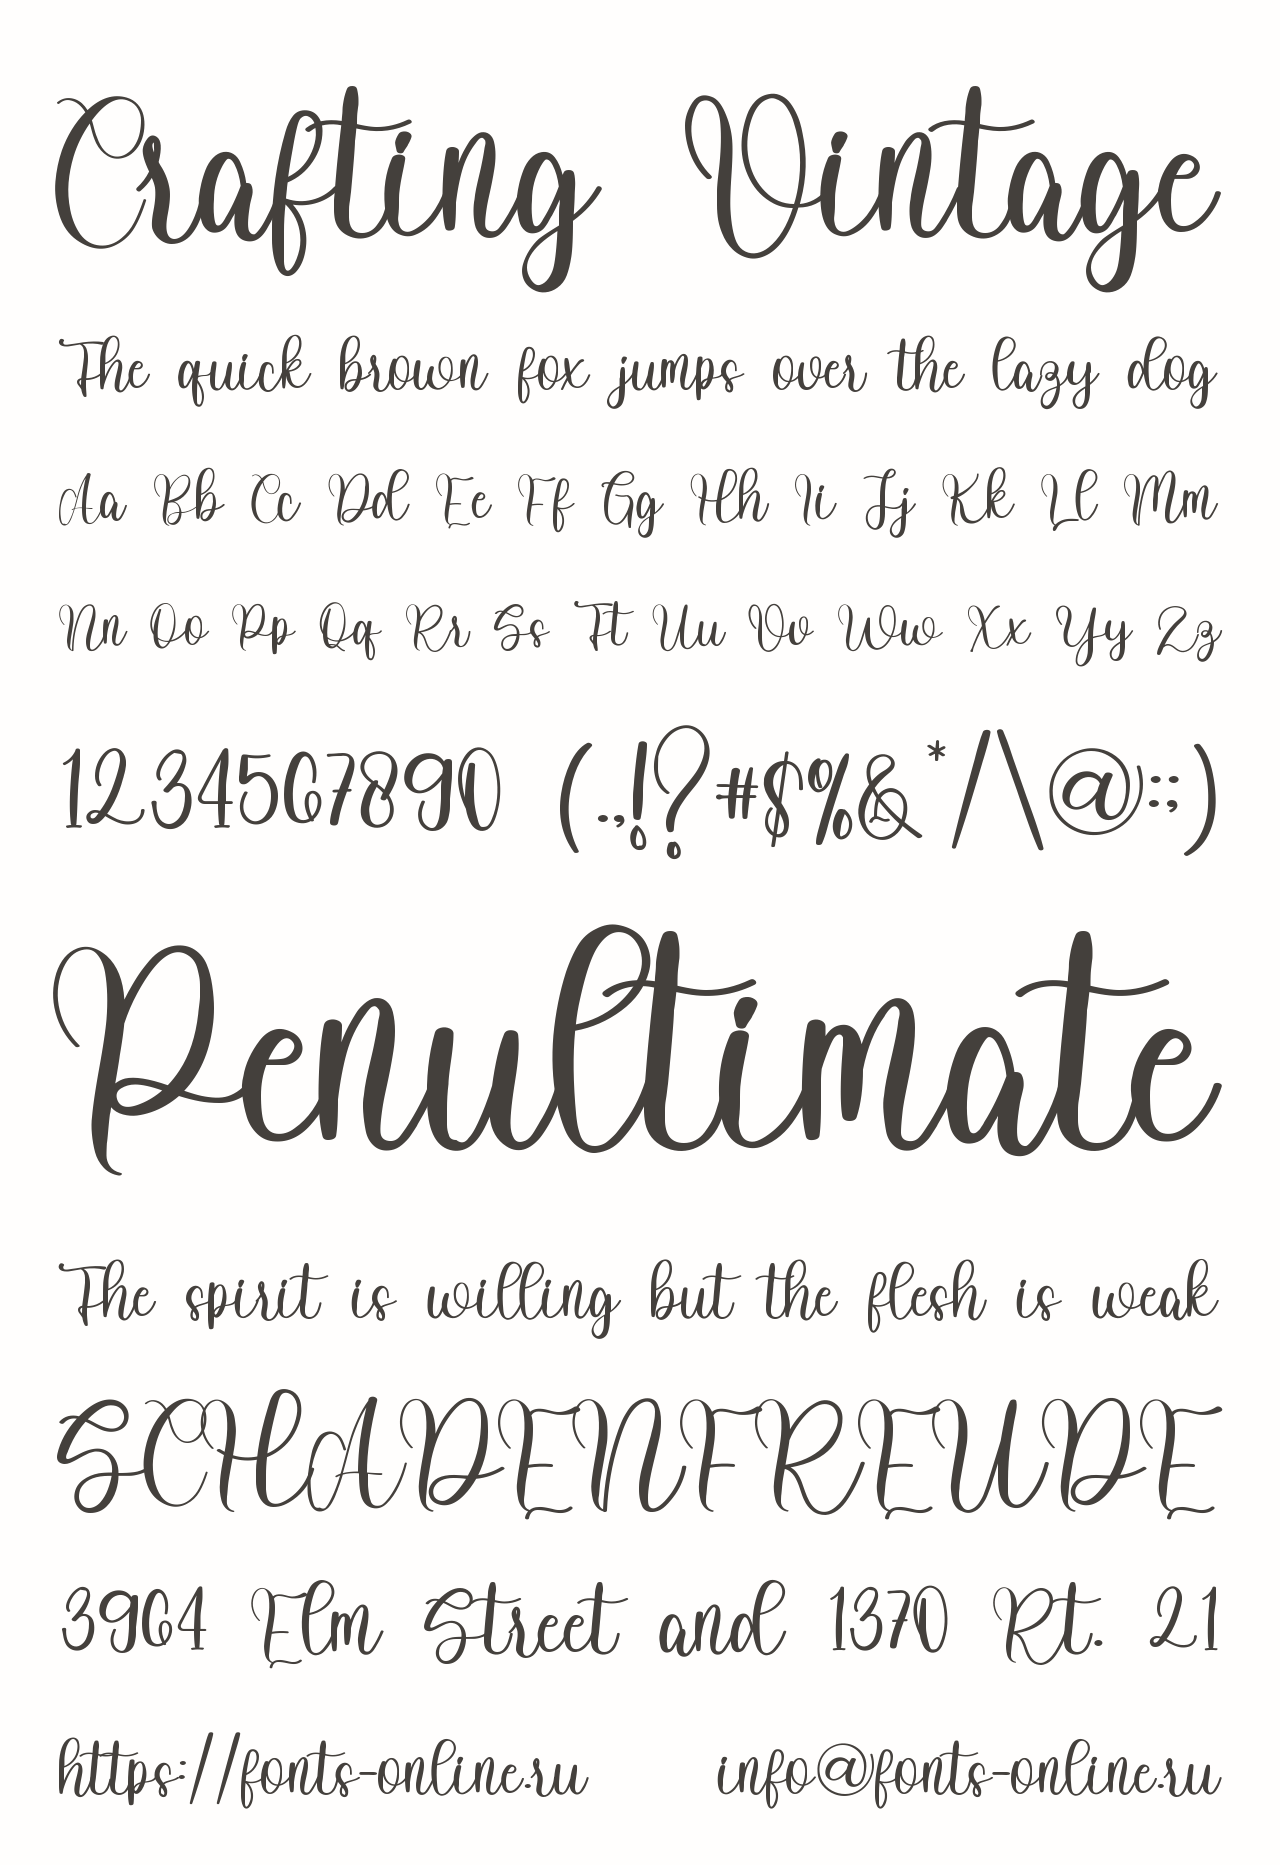 Crafting Vintage
The quick brown fox jumps over the lazy dog
Aa Bb Cc Dd Ee Ff Gg Hh Ii Jj Kk Ll Mm
Nn Oo Pp Qq Rr Ss Tt Uu Vv Ww Xx Yy Zz
1234567890 (.,!?#$%&*/\@:;)
Penultimate
The spirit is willing but the flesh is weak
SCHADENFREUDE
3964 Elm Street and 1370 Rt. 21
https://fonts-online.ru info@fonts-online.ru